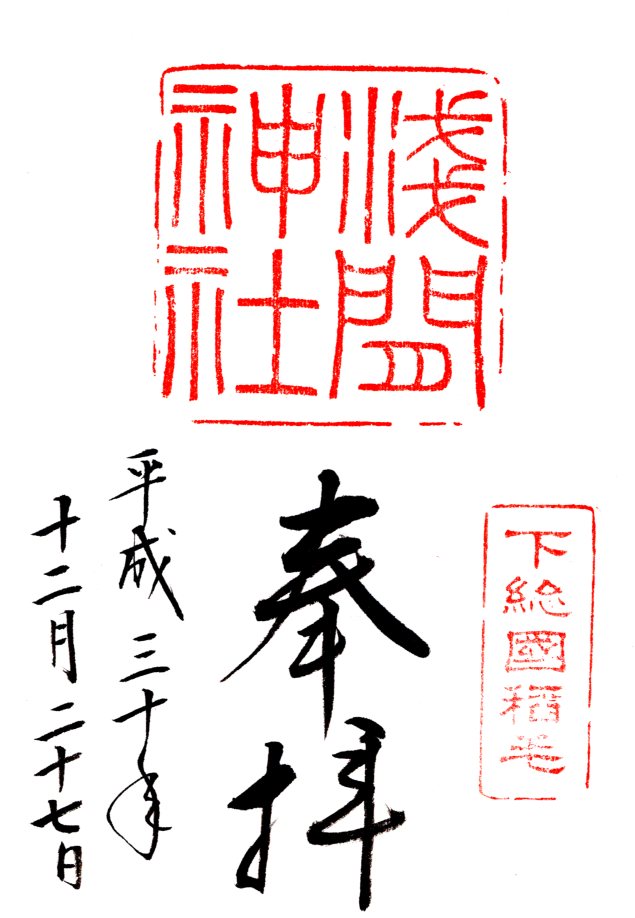 淺間
神社
下総國稲毛
奉拝
平成三十年
十二月二十七日